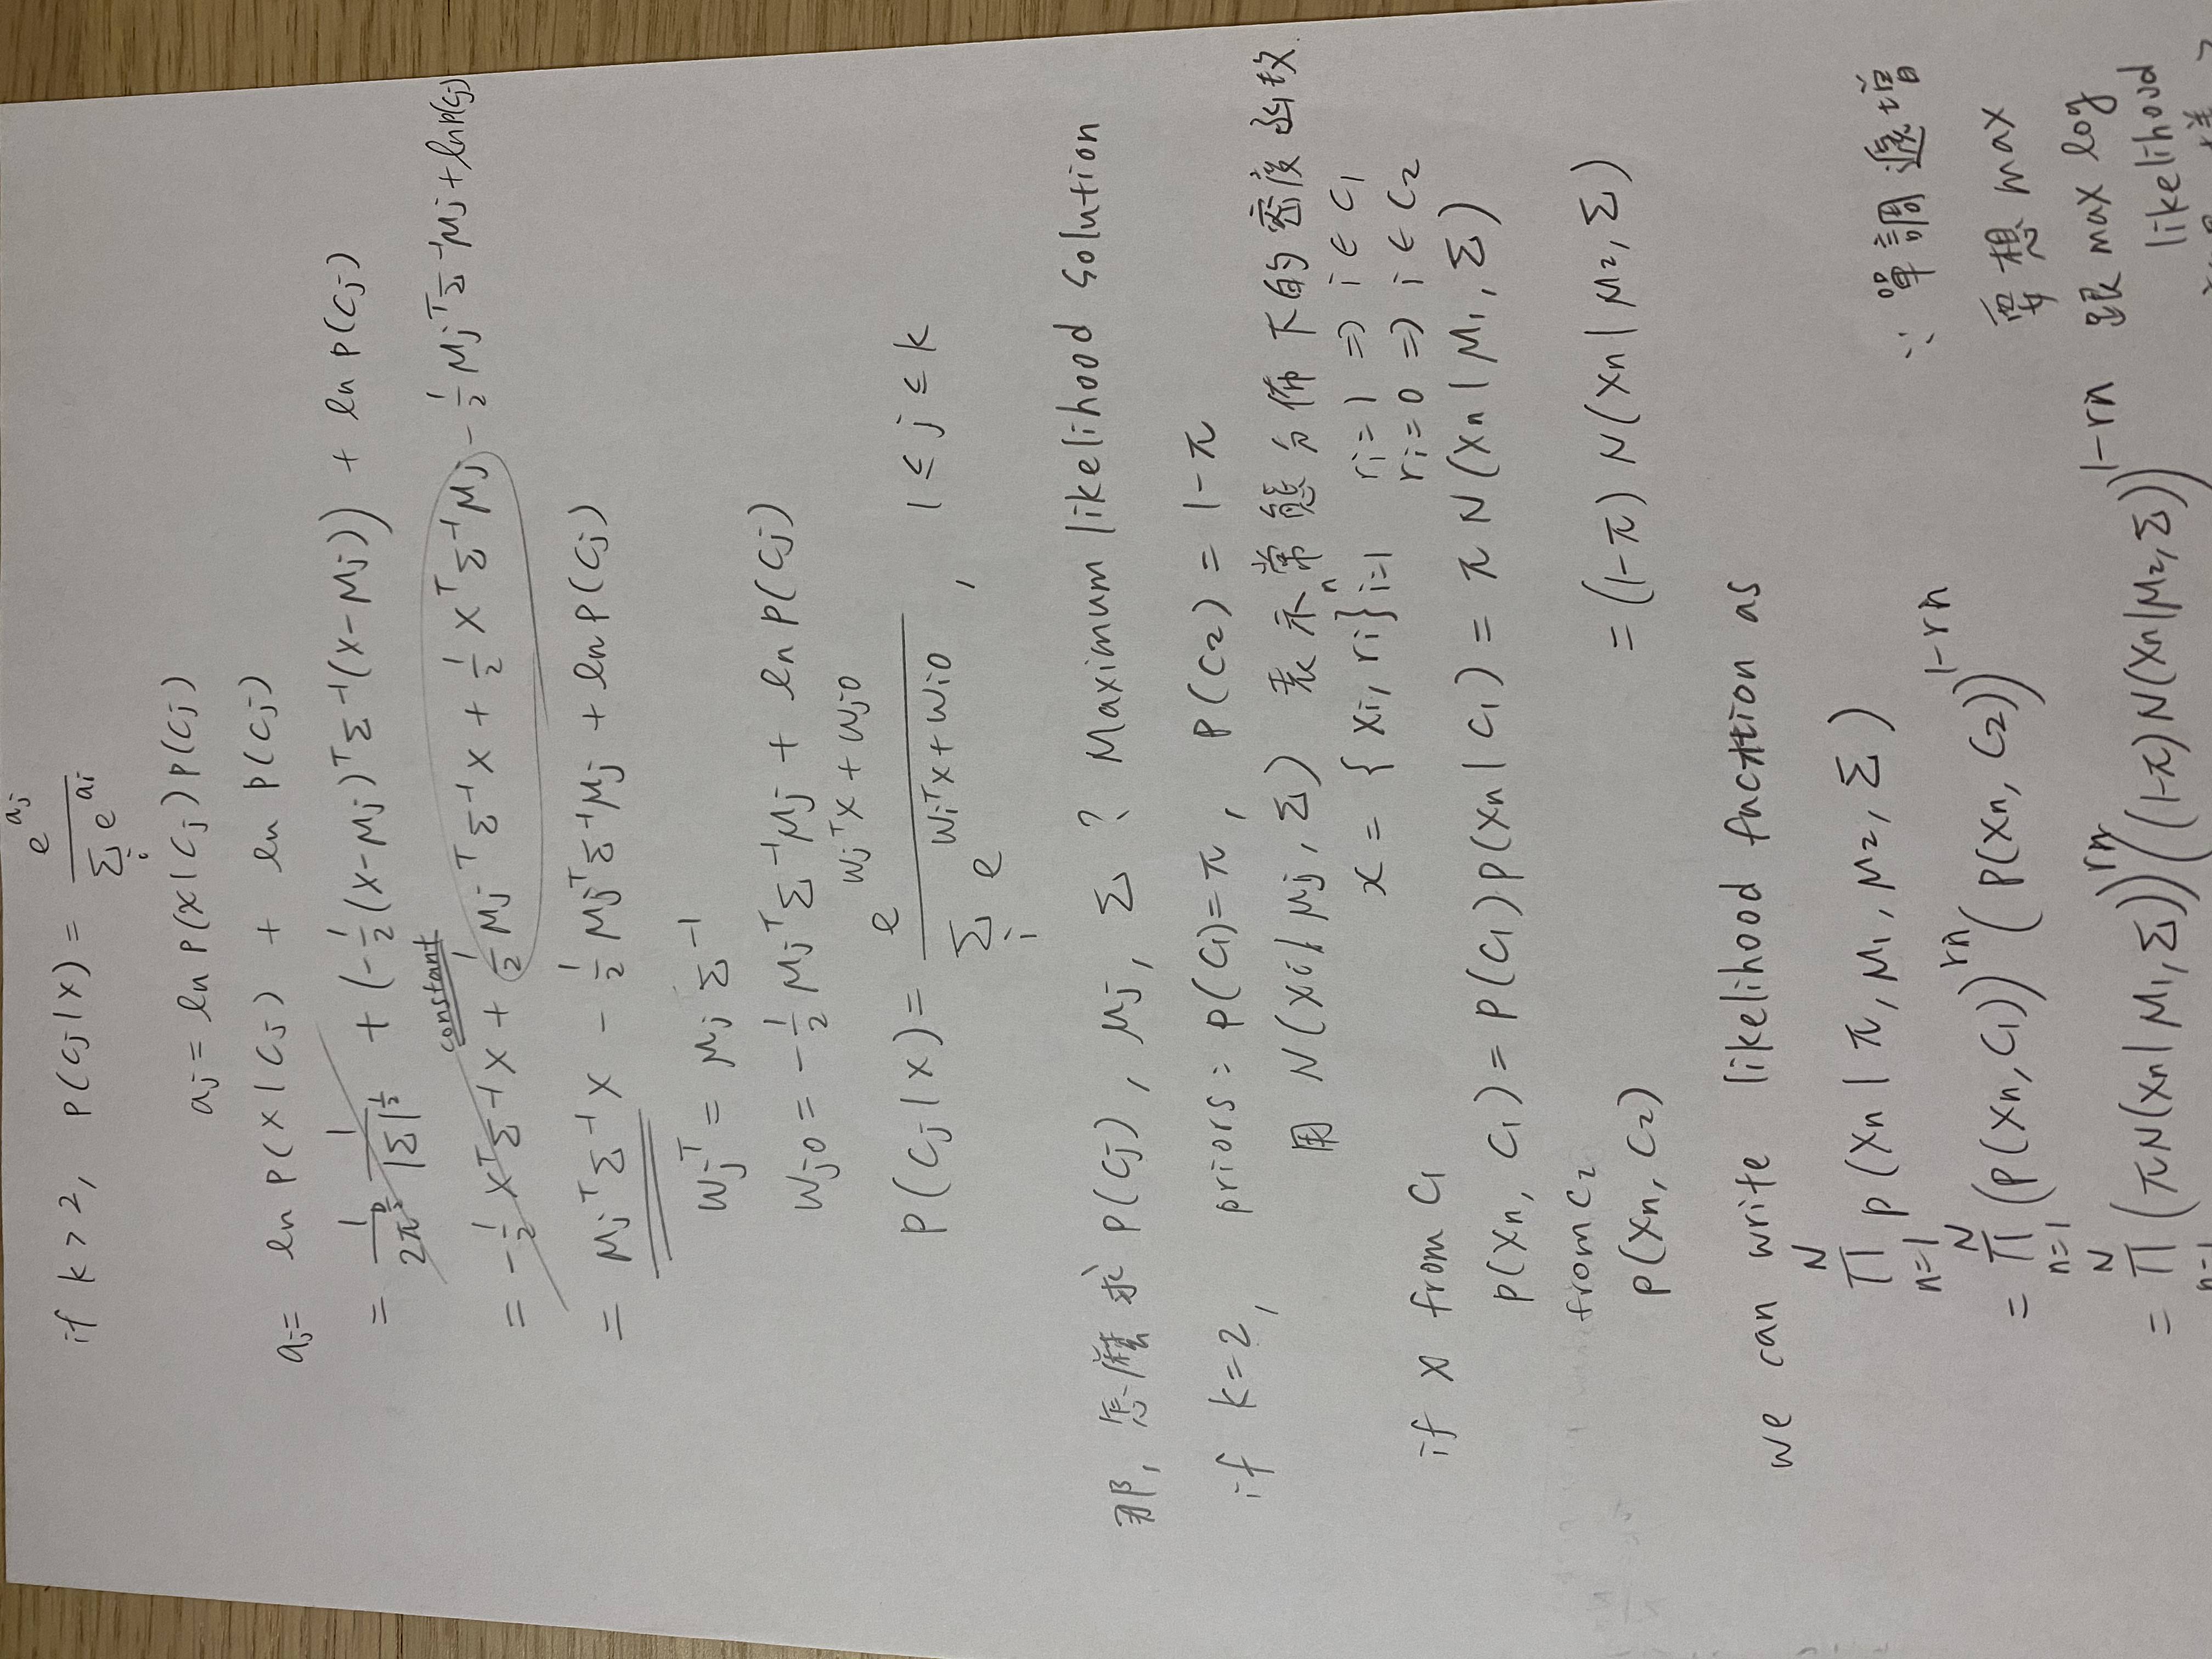 if k > 2, P(Cj|x) = e^{aj} / Σ_i e^{ai}
aj = ln P(x|Cj) P(Cj)
aj = ln P(x|Cj) + ln P(Cj)
= 1/(2π^{D/2}) 1/|Σ|^{1/2} + (-1/2 (x-μj)^T Σ^{-1} (x-μj)) + ln P(Cj)
constant
= -1/2 x^T Σ^{-1} x + 1/2 μj^T Σ^{-1} x + 1/2 x^T Σ^{-1} μj - 1/2 μj^T Σ^{-1} μj + ln P(Cj)
= μj^T Σ^{-1} x - 1/2 μj^T Σ^{-1} μj + ln P(Cj)
wj^T = μj Σ^{-1}
wj0 = -1/2 μj^T Σ^{-1} μj + ln P(Cj)
P(Cj|x) = e^{wj^T x + wj0} / Σ_i e^{wi^T x + wi0} , 1 ≤ j ≤ k
那, 怎麼求 P(Cj), μj, Σ ? Maximum likelihood solution
if k=2, priors: p(C1)=π, P(C2) = 1-π
用 N(xi|μj, Σ) 表示常態分佈下的密度函數.
x = {xi, ri}_{i=1}^n ri=1 => i ∈ C1
ri=0 => i ∈ C2
if x from C1
p(xn, C1) = P(C1) p(xn|C1) = π N(xn|μ1, Σ)
from C2
p(xn, C2) = (1-π) N(xn|μ2, Σ)
we can write likelihood faction as
∏_{n=1}^N p(xn|π, μ1, μ2, Σ)
= ∏_{n=1}^N (p(xn, C1))^{rn} (p(xn, C2))^{1-rn}
= ∏_{n=1}^N (πN(xn|μ1, Σ))^{rn} ((1-π)N(xn|μ2, Σ))^{1-rn}
∵ 單調遞增
要想 max
跟 max log
likelihood